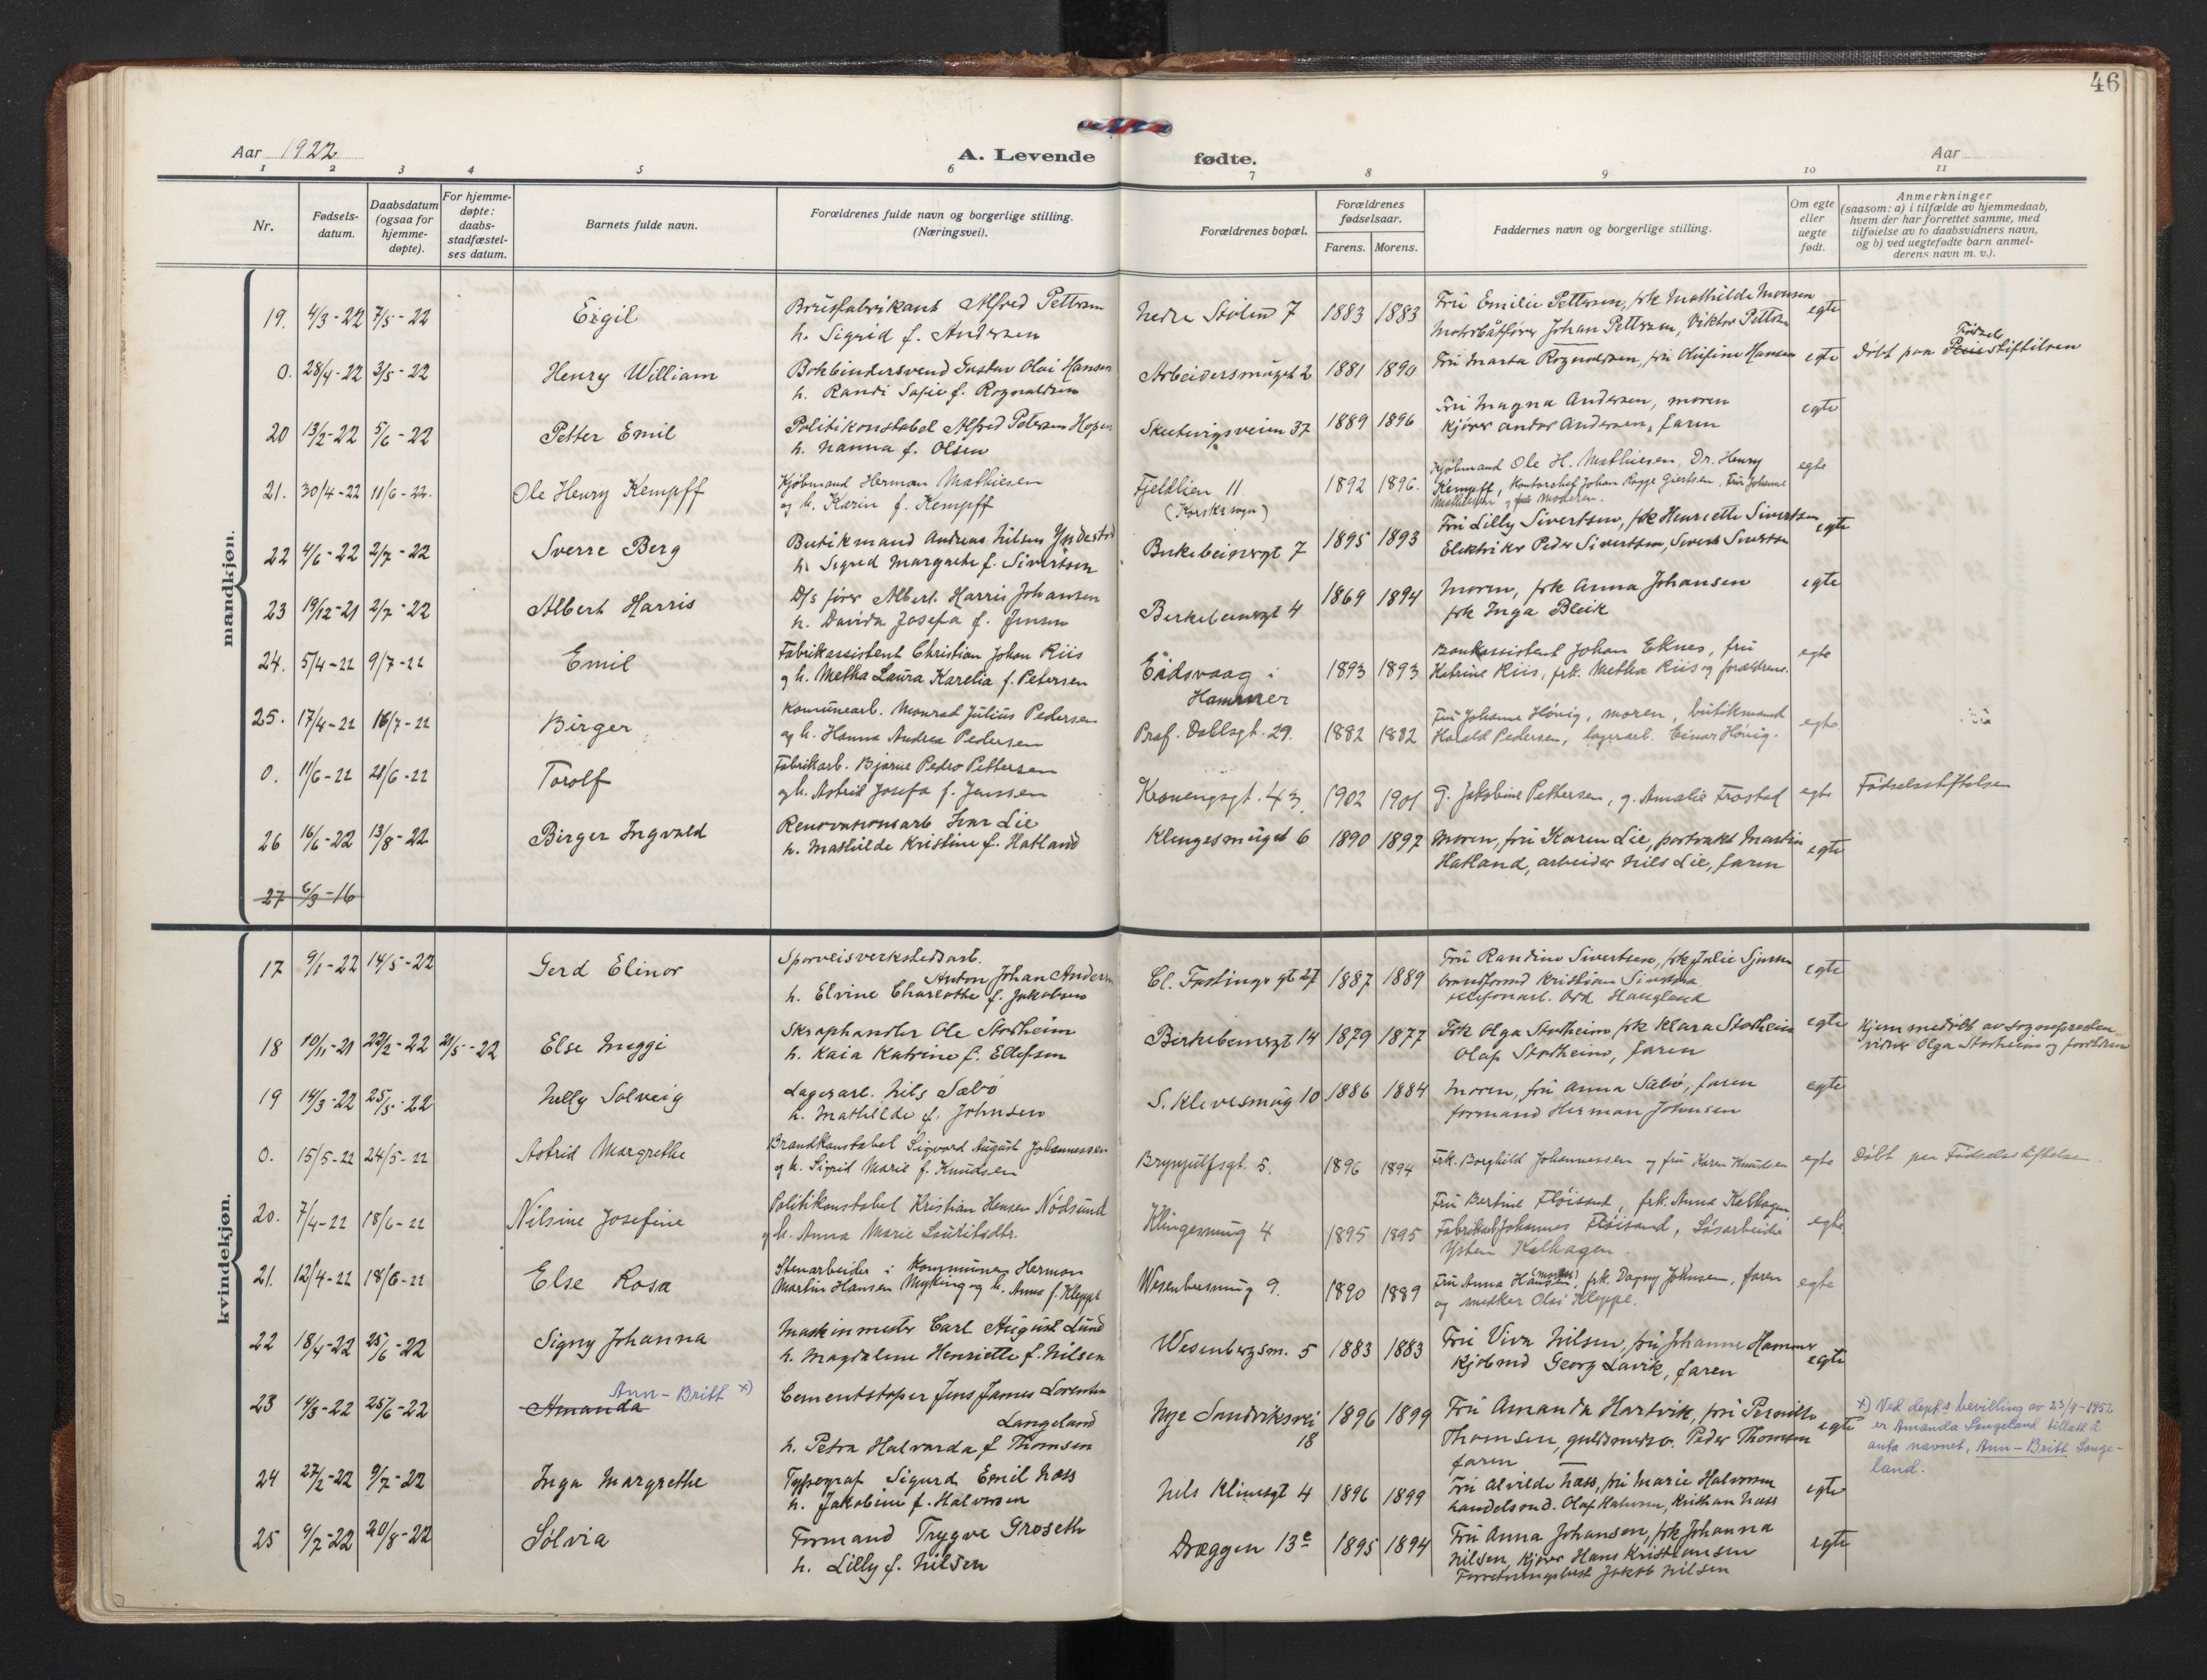 46
Aar 1922
A. Levende fødte.
Aar
1 2 3 4 5 6 7 8 9 10 11
Nr.
Fødsels-
datum.
Daabsdatum
(ogsaa for
hjemme-
døpte).
For hjemme-
døpte:
daabs-
stadfæstel-
ses datum.
Barnets fulde navn.
Forældrenes fulde navn og borgerlige stilling.
(Næringsvei).
Forældrenes bopæl.
Forældrenes
fødselsaar.
Farens. Morens.
Faddernes navn og borgerlige stilling.
Om egte
eller
uegte
født.
Anmerkninger
(saasom: a) i tilfælde av hjemmedaab,
hvem der har forrettet samme, med
tilføielse av to daabsvidners navn,
og b) ved uegtefødte barn anmel-
derens navn m. v.).
mandkjøn.
19. 4/3-22 7/5-22 Eigil
Brusfabrikant Alfred Pettersen
h. Sigrid f. Andersen
Nedre Stølen 7 1883 1883
Fru Emilie Pettersen, frk Mathilde Monsen
Motorbåtfører Johan Pettersen, Viktor Pettersen
egte
0. 28/4-22 3/5-22 Henry William
Bokbindersvend Gustav Olai Hansen
h. Randi Sofie f. Rognaldsen
Arbeidersmuget 2 1881 1890
Fru Marta Rognaldsen, fru Olufine Hansen
egte
Døbt paa Fødselsstiftelsen
20 13/2-22 5/6-22 Petter Emil
Politikonstabel Alfred Petersen Hopen
h. Nanna f. Olsen
Skuteviksveien 37 1889 1896
Fru Magna Andersen, moren
Kjører Andor Andersen, faren
egte
21. 30/4-22 11/6-22. Ole Henry Kempff
Kjøbmand Herman Mathiesen
og h. Karin f. Kempff
Fjeldlien 11
(Korskirksogn)
1892 1896.
Kjøbmand Ole H. Mathiesen, Dr. Henry
Kempff, Kontorchef Johan Giertsen, Fru Johanne
Mathiesen og moderen.
egte
22 4/6-22 2/7-22 Sverre Berg
Butikmand Andreas Nilsen Yndestad
h. Sigrid Margrethe f. Sivertsen
Birkebeinergt 7 1895 1893
Fru Lilly Sivertsen, frk Henriette Sivertsen
Elektriker Peder Sivertsen, Sivert Sivertsen
egte
23 19/12-21 2/7-22 Albert Harris
D/s fører Albert Harris Johansen
h. Davida Josefa f. Jensen
Birkebeinergt 4 1869 1894
Moren, frk Anna Johansen
frk Inga Bleik
egte
24. 5/4-22 9/7-22 Emil
Fabrikassistent Christian Johan Riis
og h. Metha Laura Karelia f. Petersen
Eidsvaag i
Hammer
1893 1893
Bankassistent Johan Eknes, fru
Katrine Riis, frk. Metha Riis og forældrene.
egte
25. 17/4-22 16/7-22 Birger
Komunearb. Monrad Julius Pedersen
og h. Hanna Andrea Pedersen
Prof. Dahlsgt. 29. 1882 1882
Fru Johanne Høvig, moren, butikmand
Harald Pedersen, lagerarb. Einar Høvig.
egte
0. 11/6-22 21/6-22 Torolf
Fabrikarb. Bjarne Pedro Pettersen
og h. Astrid Josefa f. Jenssen
Kronengsgt. 43. 1902 1901
G. Jakobine Pettersen, g. Amalie Frostad
egte
Fødselsstiftelsen
26 16/6-22 13/8-22 Birger Ingvald
Renovationsarb Ivar Lie
h. Mathilde Kristine f. Hatland
Klengesmuget 6 1890 1897
Moren, fru Karen Lie, Martin
Hatland, arbeider Nils Lie, faren
egte
27 6/3-16
kvindekjøn.
17 9/1-22 14/5-22 Gerd Elinor
Sporveisverkstedsarb.
Anton Johan Andersen
h. Elvine Charlothe f. Jakobsen
Cl. Fastingsgt 27 1887 1889
Fru Randine Sivertsen, frk Julie
Kristian
telefonarb. Haugland
egte
18 10/11-21 22/2-22 21/5-22 Else Meggi
Skraphandler Ole Storheim
h. Kaia Katrine f. Ellefsen
Birkebeinergt 14 1879 1877
Frk Olga Storheim, frk Klara Storheim
Olaf Storheim, faren
egte
Hjemmedøbt av sognepresten
vidner Olga Storheim og forældrene
19 14/3-22 25/5-22 Nelly Solveig
Lagerarb. Nils Sæbø
h. Mathilde f. Johnsen
S. Klevesmug 10 1886 1884
Moren, fru Anna Sæbø, faren
formand Herman Johnsen
egte
0. 15/5-22 24/5-22 Astrid Margrethe
Brandkonstabel Sigvard August Johannessen
og h. Sigrid Marie f. Knudsen
Brynjulfsgt. 5. 1896 1894
Frk. Borghild Johannessen og fru Karen Knudsen
egte
Døbt paa Fødselsstiftelsen
20. 7/4-22 18/6-22 Nilsine Josefine
Politikonstabel Kristian Hansen Nødsund
og h. Anna Marie Lauritsdtr.
Klingesmug 4 1895 1895
Fru Bertine Fløisand, frk. Anna Kalhagen
Fabrikarb Johannes Fløisand, Løsarbeider
Ysten Kalhagen.
egte
21. 12/4-22 18/6-22 Else Rosa
Stenarbeider i Kommunen Herman
Martin Hansen Myking og h. Anna f. Kleppe
Wesenbergsmug 9. 1890 1889
Fru Anna Hansen (moren), frk. Dagny Johnsen, faren
og snedker Olai Kleppe.
egte
22 18/4-22 25/6-22 Signy Johanna
Maskinmester Carl August Lund
h. Magdalene Henriette f. Nilsen
Wesenbergsm. 5 1883 1883
Fru Viva Nilsen, fru Johanne Hammer
Kjøbmd Georg Lavik, faren
egte
23 14/3-22 25/6-22 Amanda Ann-Britt x)
Cementstøper Jens James Lorentsen
Langeland
h. Petra Halvarda f Thomsen
Nye Sandviksvei
18
1896 1899
Fru Amanda Hartvik, fru Pernille
Thomsen, guldsmedsv. Peder Thomsen
faren
egte
x) Ved dept.s bevilling av 23/9-1952
er Amanda Langeland tillatt å
anta navnet, Ann-Britt Lange-
land.
24 27/2-22 9/7-22 Inga Margrethe
Typograf Sigurd Emil Næss
h. Jakobine f. Halvorsen
Nils Klimsgt 4 1896 1899
Fru Alvilde Næss, fru Marie Halvorsen
handelsmd. Olaf Halvorsen, Kristian Næss
egte
25 9/7-22 20/8-22 Sølvia
Formand Trygve Groseth
h. Lilly f. Nilsen
Dræggen 13e 1895 1894
Fru Anna Johansen, frk Johanna
Nilsen, Kjører Hans Kristiansen
Jakob Nilsen
egte